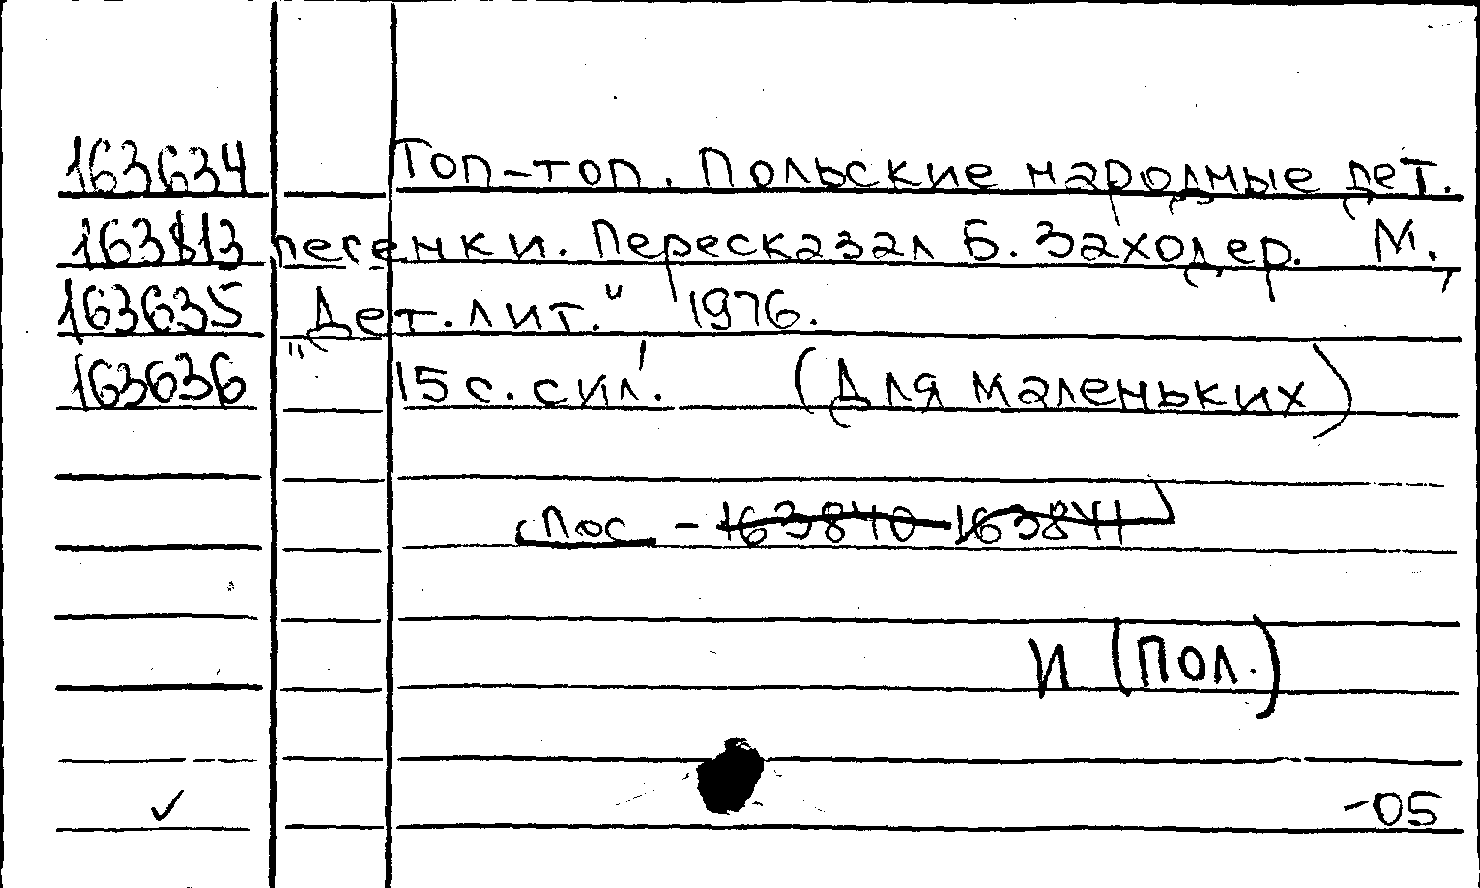 163634 Топ-топ. Польские народные дет.
163813 песенки. Пересказал Б. Заходер. М.,
163635 "Дет. лит." 1976.
163636 15 с. с ил. (Для маленьких)
- 163840 163841
И (Пол.)
-05